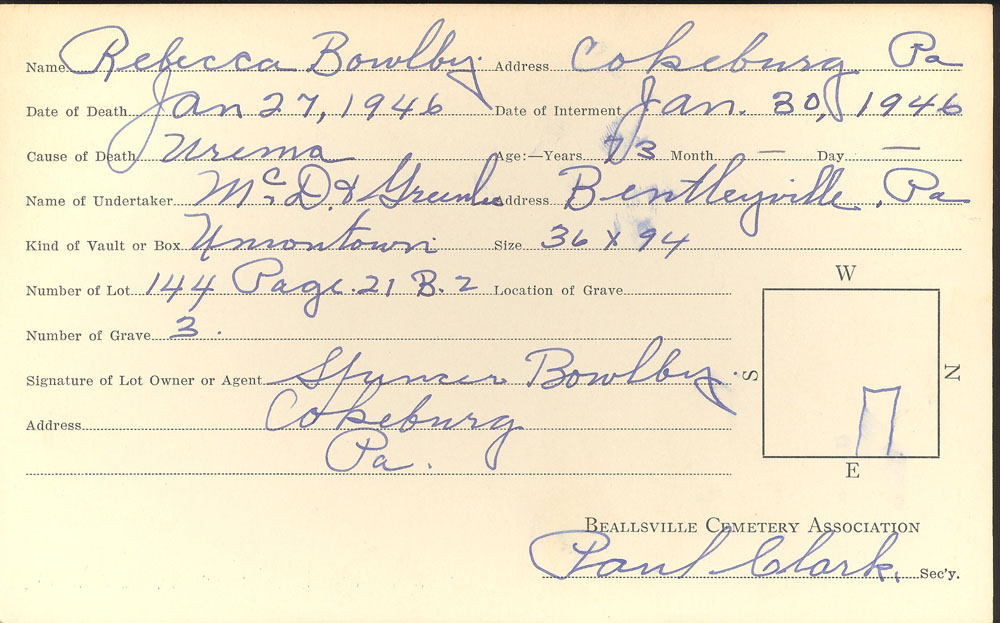 Name Rebecca Bowlby Address Cokeburg Pa
Date of Death Jan 27, 1946 Date of Interment Jan. 30, 1946
Cause of Death Urema Age:—Years 73 Month — Day —
Name of Undertaker Mc D. & Greenlee Address Bentleyville, Pa
Kind of Vault or Box Uniontown Size 36 x 94
Number of Lot 144 Page. 21 B. 2 Location of Grave
Number of Grave 3.
W
Signature of Lot Owner or Agent Spencer Bowlby.
S N
Address Cokeburg
Pa.
E
BEALLSVILLE CEMETERY ASSOCIATION
Paul Clark, Sec'y.